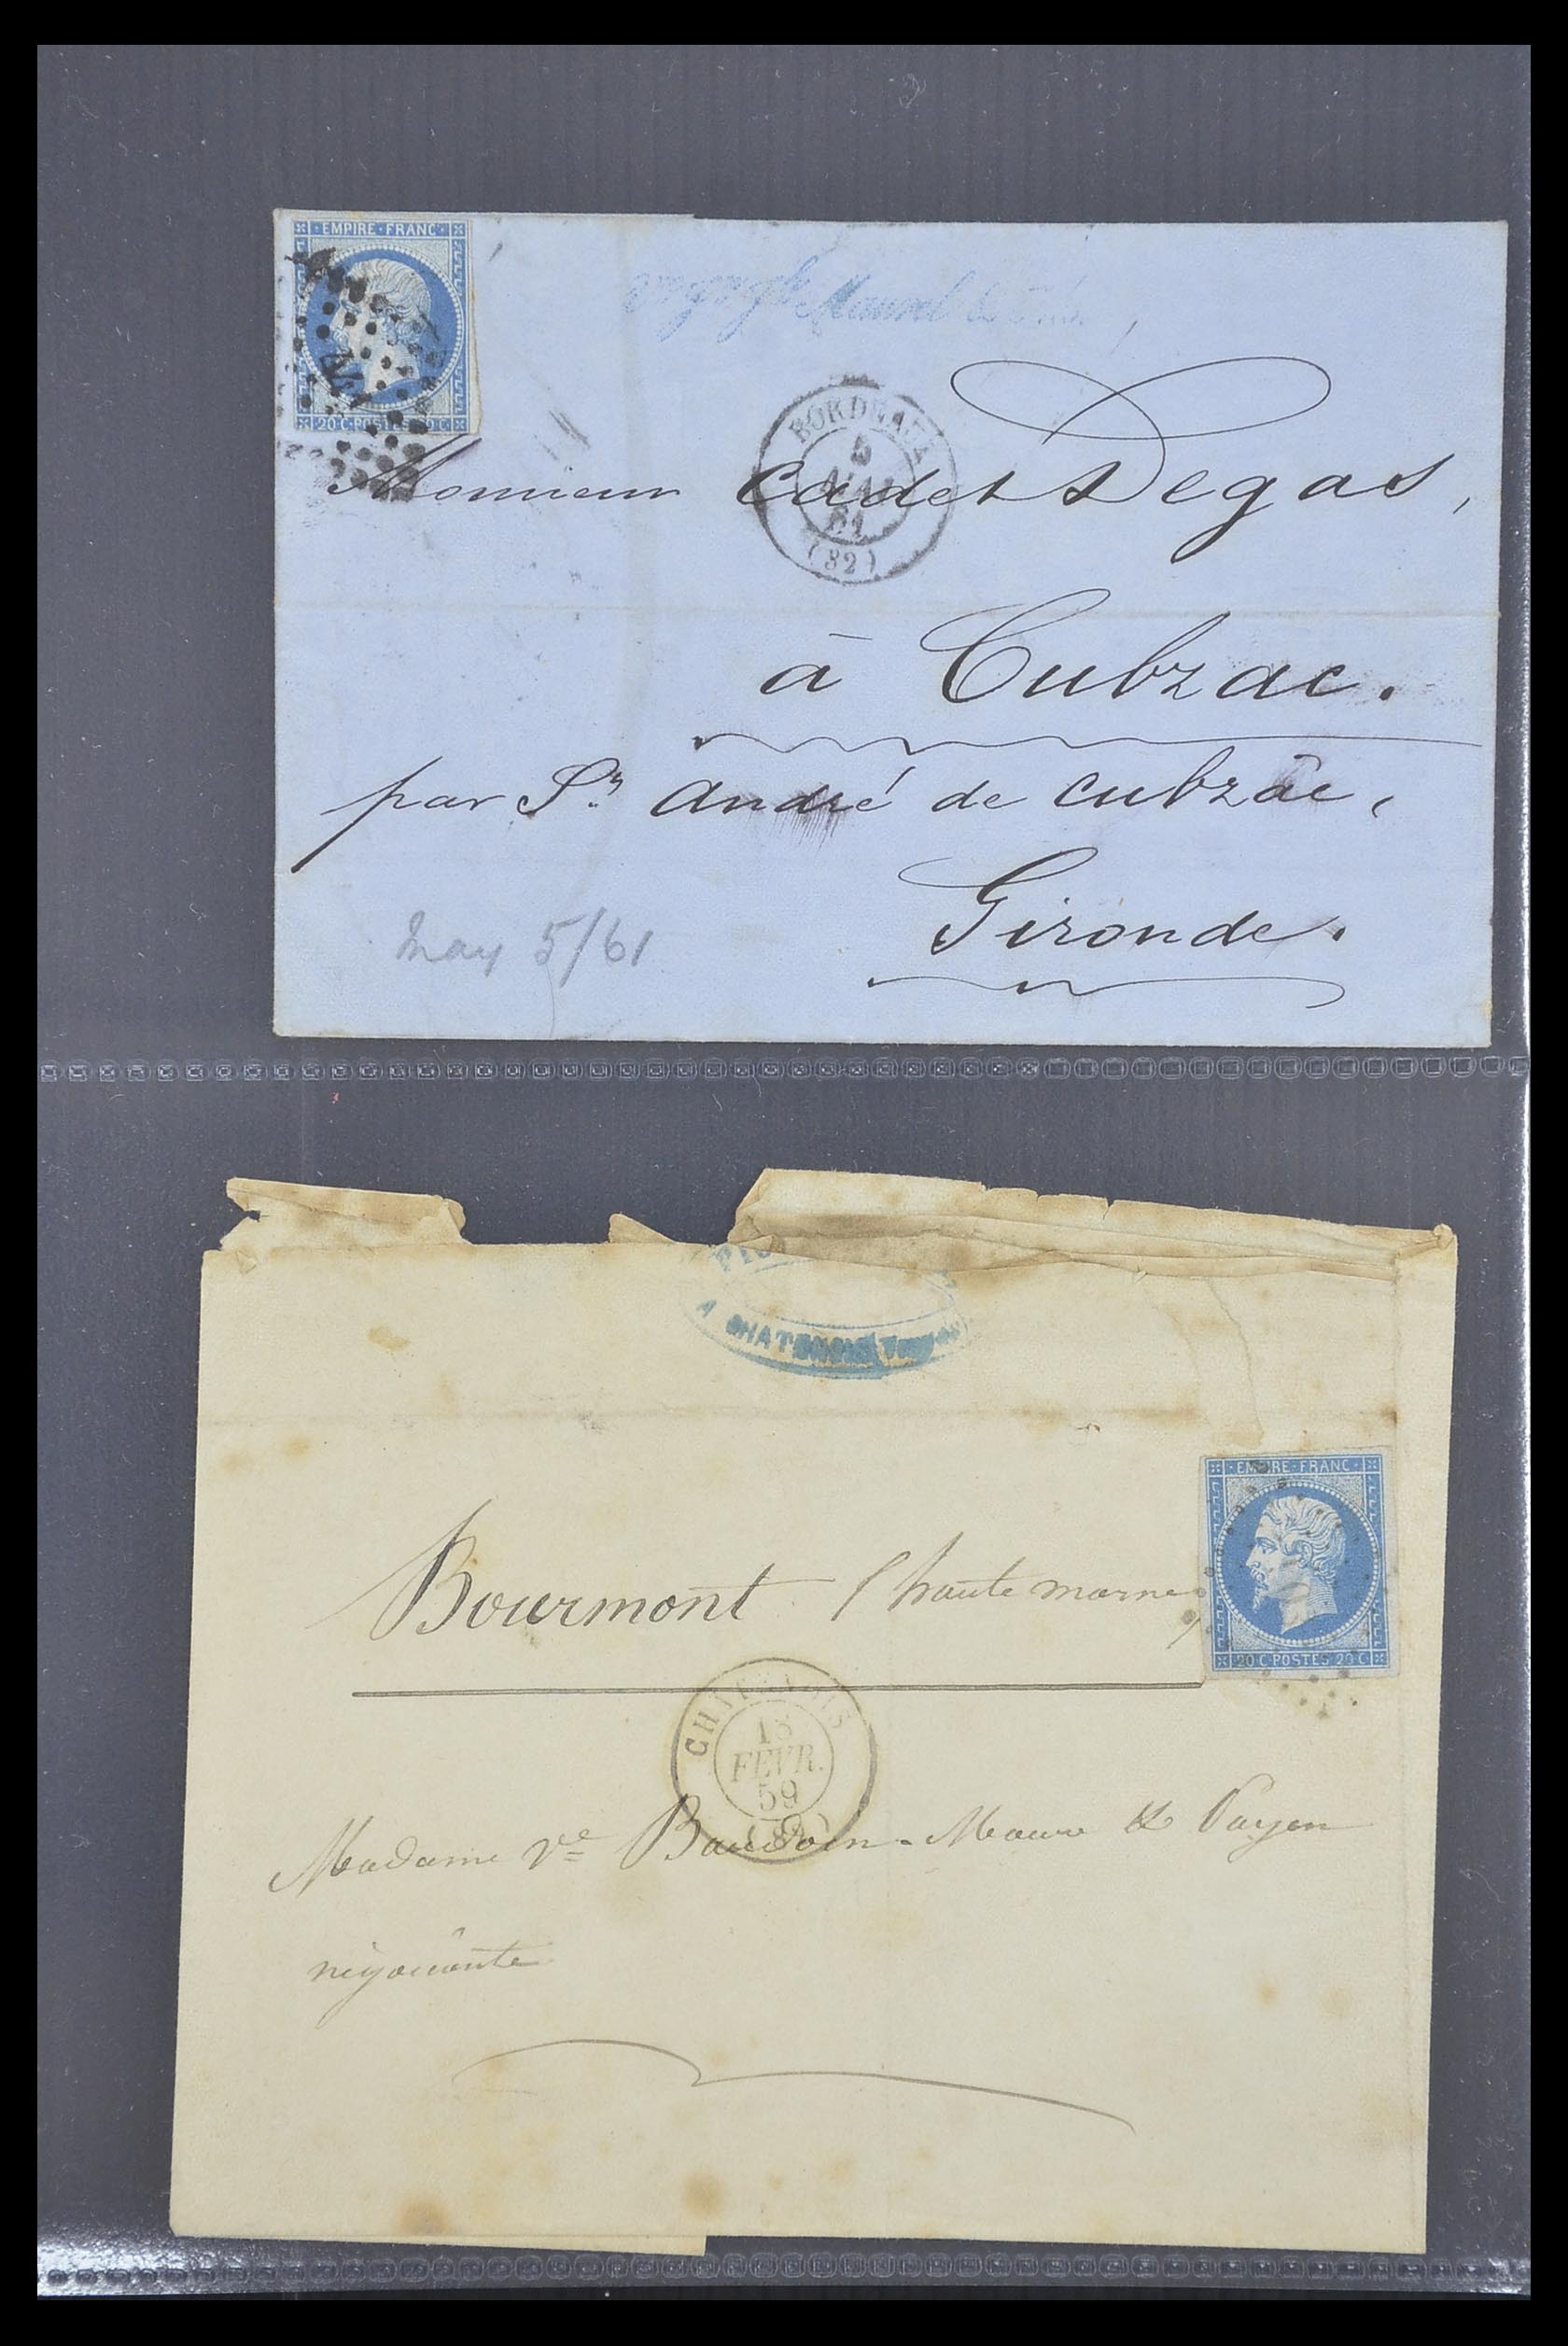 · EMPIRE · FRANC ·
20 C · POSTES 20 C ·
Maurel
BORDEAUX
5
MAI
61
(32)
Monsieur Cadet Degas,
à Cubzac.
par St. André de Cubzac,
Gironde.
May 5/61
A CHATENOIS
· EMPIRE · FRANC ·
20 C · POSTES 20 C ·
Bourmont (haute marne
CHATENOIS
18
FEVR.
59
Madame Ve Baudoin - & Payen
négociante